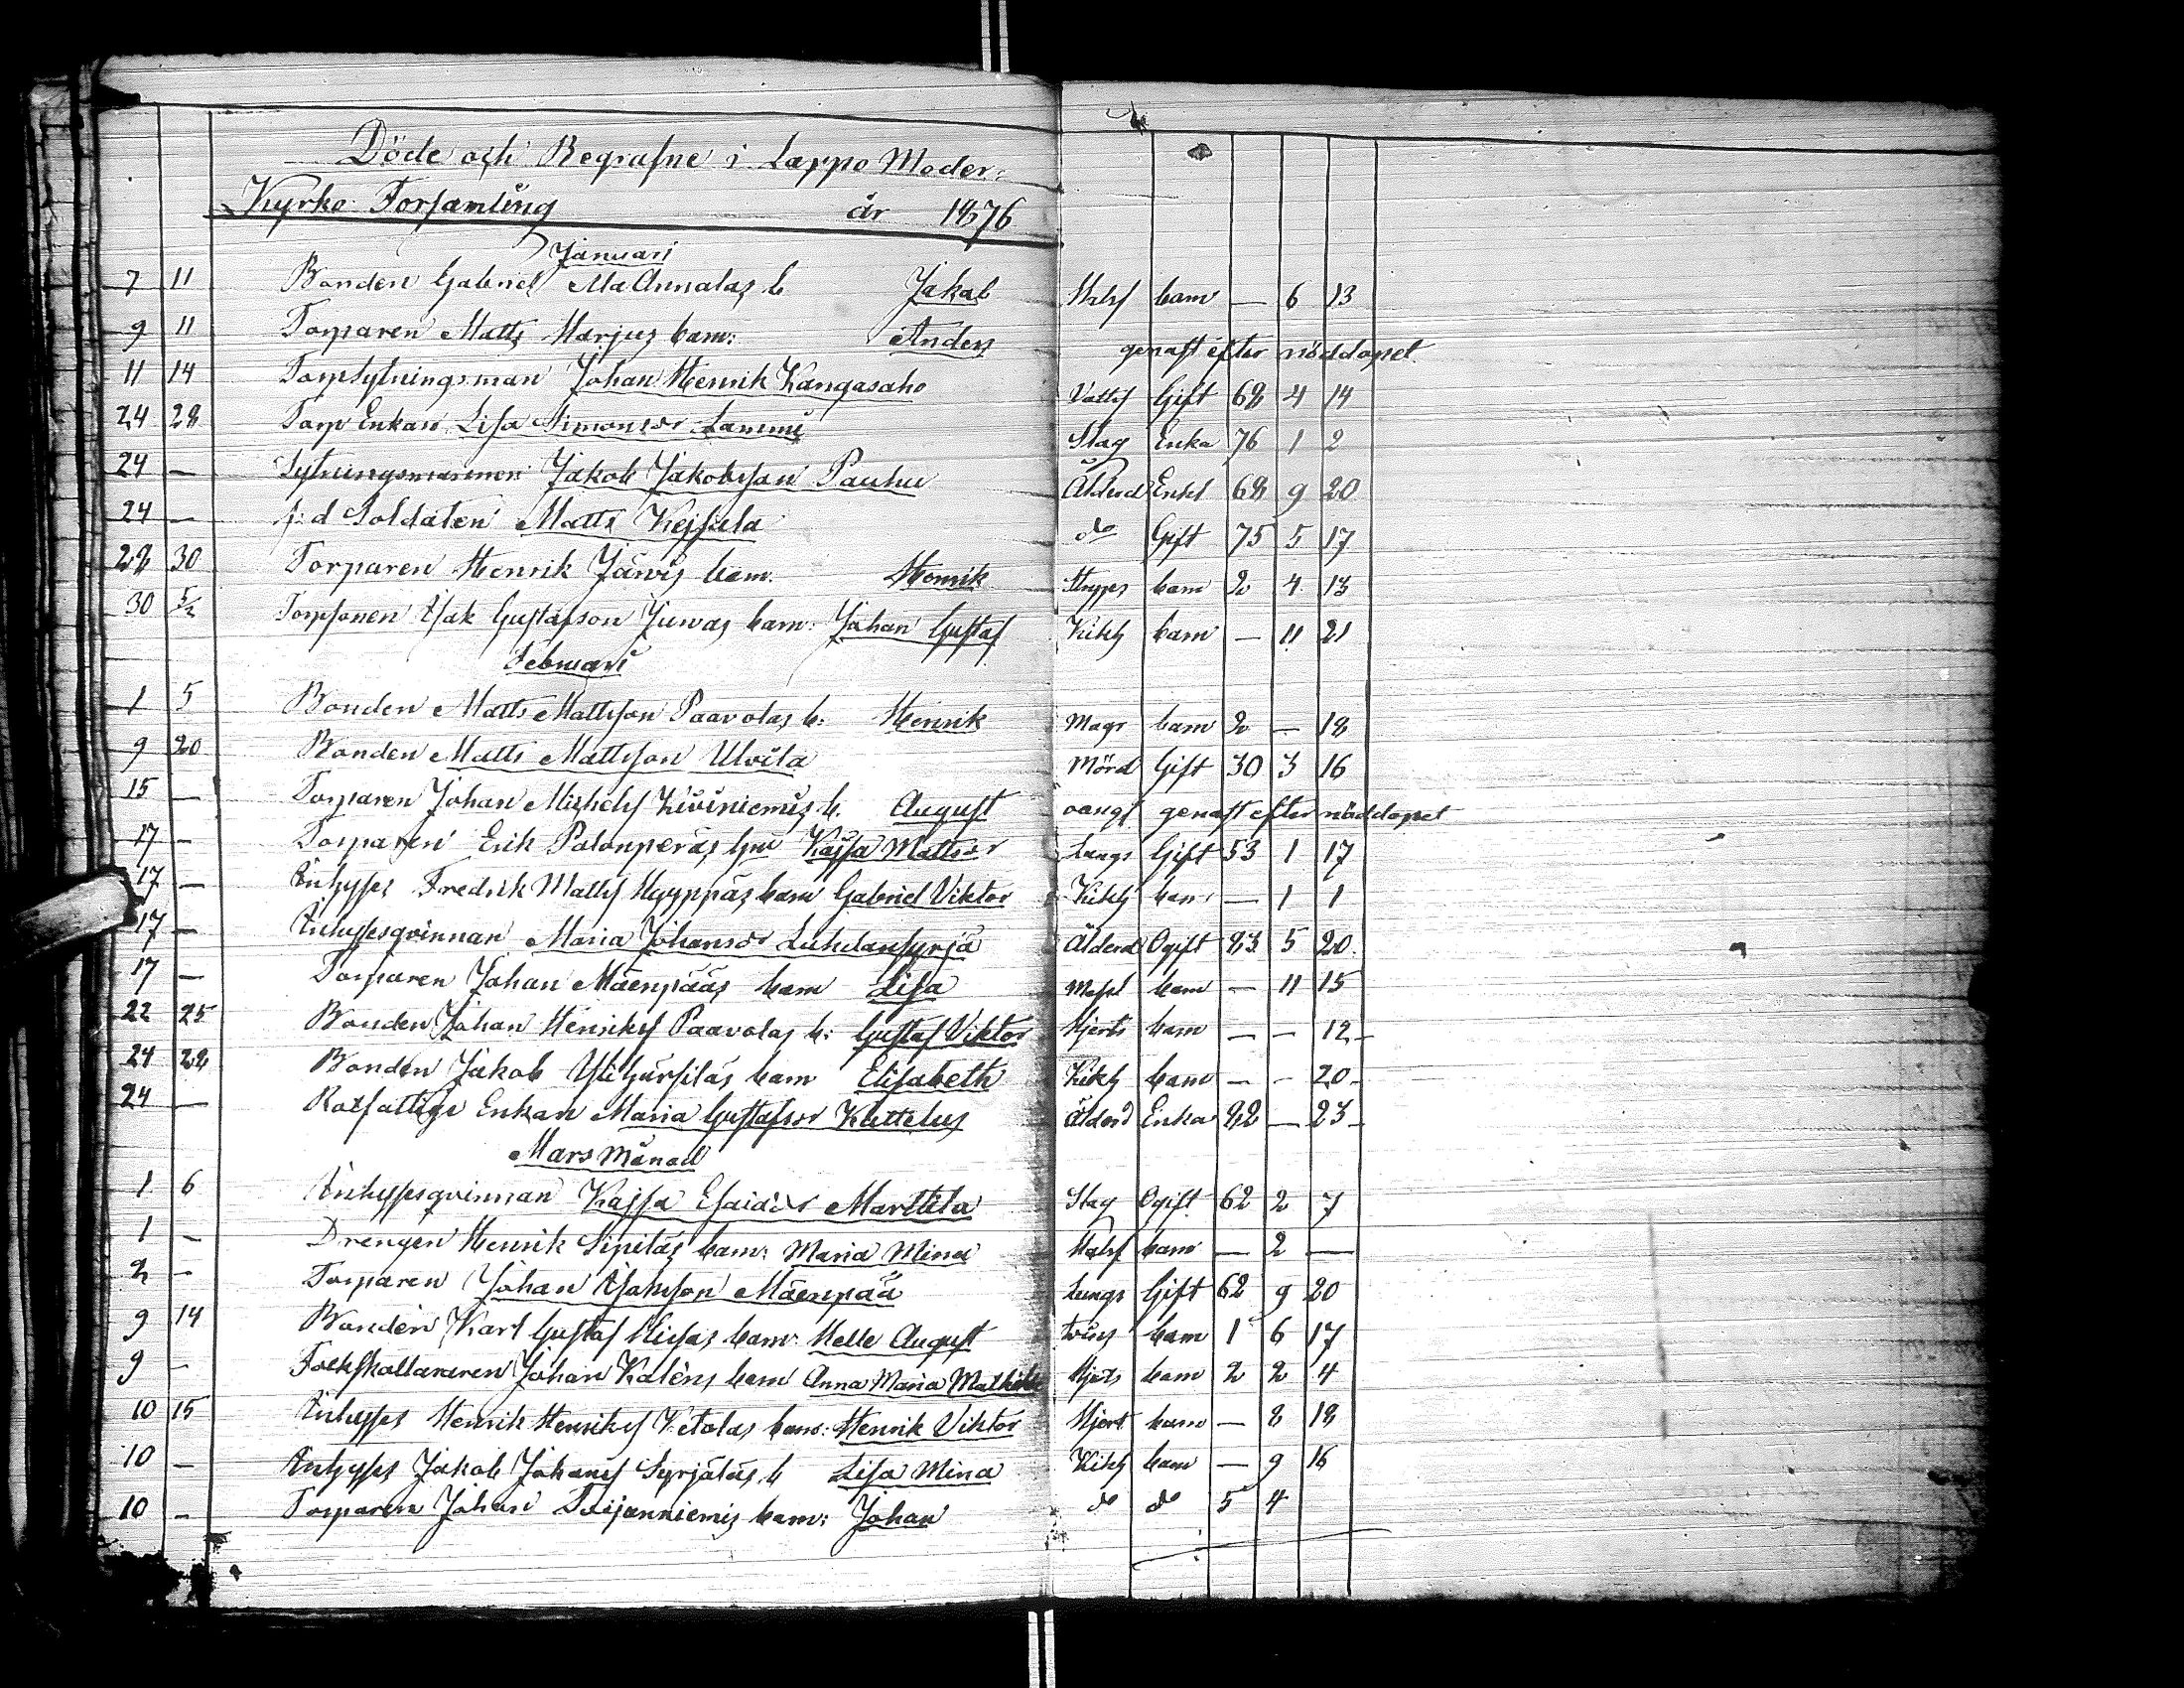 Döde och Begrafne i Lappo Moder-
Kyrko Församling år 1876
Januari
7 11 Bonden Gabriel MaAnnalas b Jakob Halsf barn — 6 13
9 11 Torparen Matts Marjus barn: Anders genast efter nöddopet
11 14 Torpsytningsman Johan Henrik Kangasaho Vatts Gift 68 4 14
24 28 Torp Enkan Lisa Simonsdr Lammi Slag Enka 76 1 2
24 — Sytningsmannen Jakob Jakobsson Pauhu Ålderd Enkl 68 9 20
24 — f:d Soldaten Matts do Gift 75 5 17
28 30 Torparen Henrik Järvis barn. Henrik Strypsj barn 2 4 13
30 5/2 Isak Gustafson Juvas barn: Johan Gustaf Kikh barn — 11 21
Februari
1 5 Bonden Matts Mattsson Paavolas b: Henrik Mags barn 2 — 18
9 20 Bonden Matts Mattsson Ulvila Mörd Gift 30 3 16
15 — Torparen Johan Michels Kiviniemis b. August genast efter nöddopet
17 — Torparen Erik Palonperäs hu Kajsa Mattsdr Lungs Gift 53 1 17
17 — Inhyses Fredrik Matts Hyyppäs barn Gabriel Viktor Kikh barn — 1 1
17 — Inhysesqvinnan Maria Johansdr Luhdansyrjä Ålderd Ogift 83 5 20
17 — Torparen Johan Mäenpääs barn Lisa Mässl barn — 11 15
22 25 Bonden Johan Henriks Paavolas b: Gustaf Viktor Hjerts barn — — 12
24 28 Bonden Jakob barn Elisabeth Kikh barn — — 20
24 — Rotfattige Enkan Maria Gustafsdr Ålderd Enka 82 — 23
Mars Månad
1 6 Inhysesqvinnan Kajsa Esaidr Marttila Slag Ogift 62 2 7
1 — Drengen Henrik Sipiläs barn: Maria Mina Halsf barn — 2 —
2 — Torparen Johan Isaksson Mäenpää Lungs Gift 62 9 20
9 14 Bonden Karl Gustaf barn: Helle August barn 1 6 17
9 — Folkskolläraren Johan Kaléns barn Anna Maria Mathilda Hjerts barn 2 2 4
10 15 Inhyses Henrik Henriks Ketolas barn: Henrik Viktor Hjert barn — 8 18
10 — Inhyses Jakob Johans Syrjäläs b Lisa Mina Kikh barn — 9 16
10 — Torparen Johan barn: Johan do do 5 4